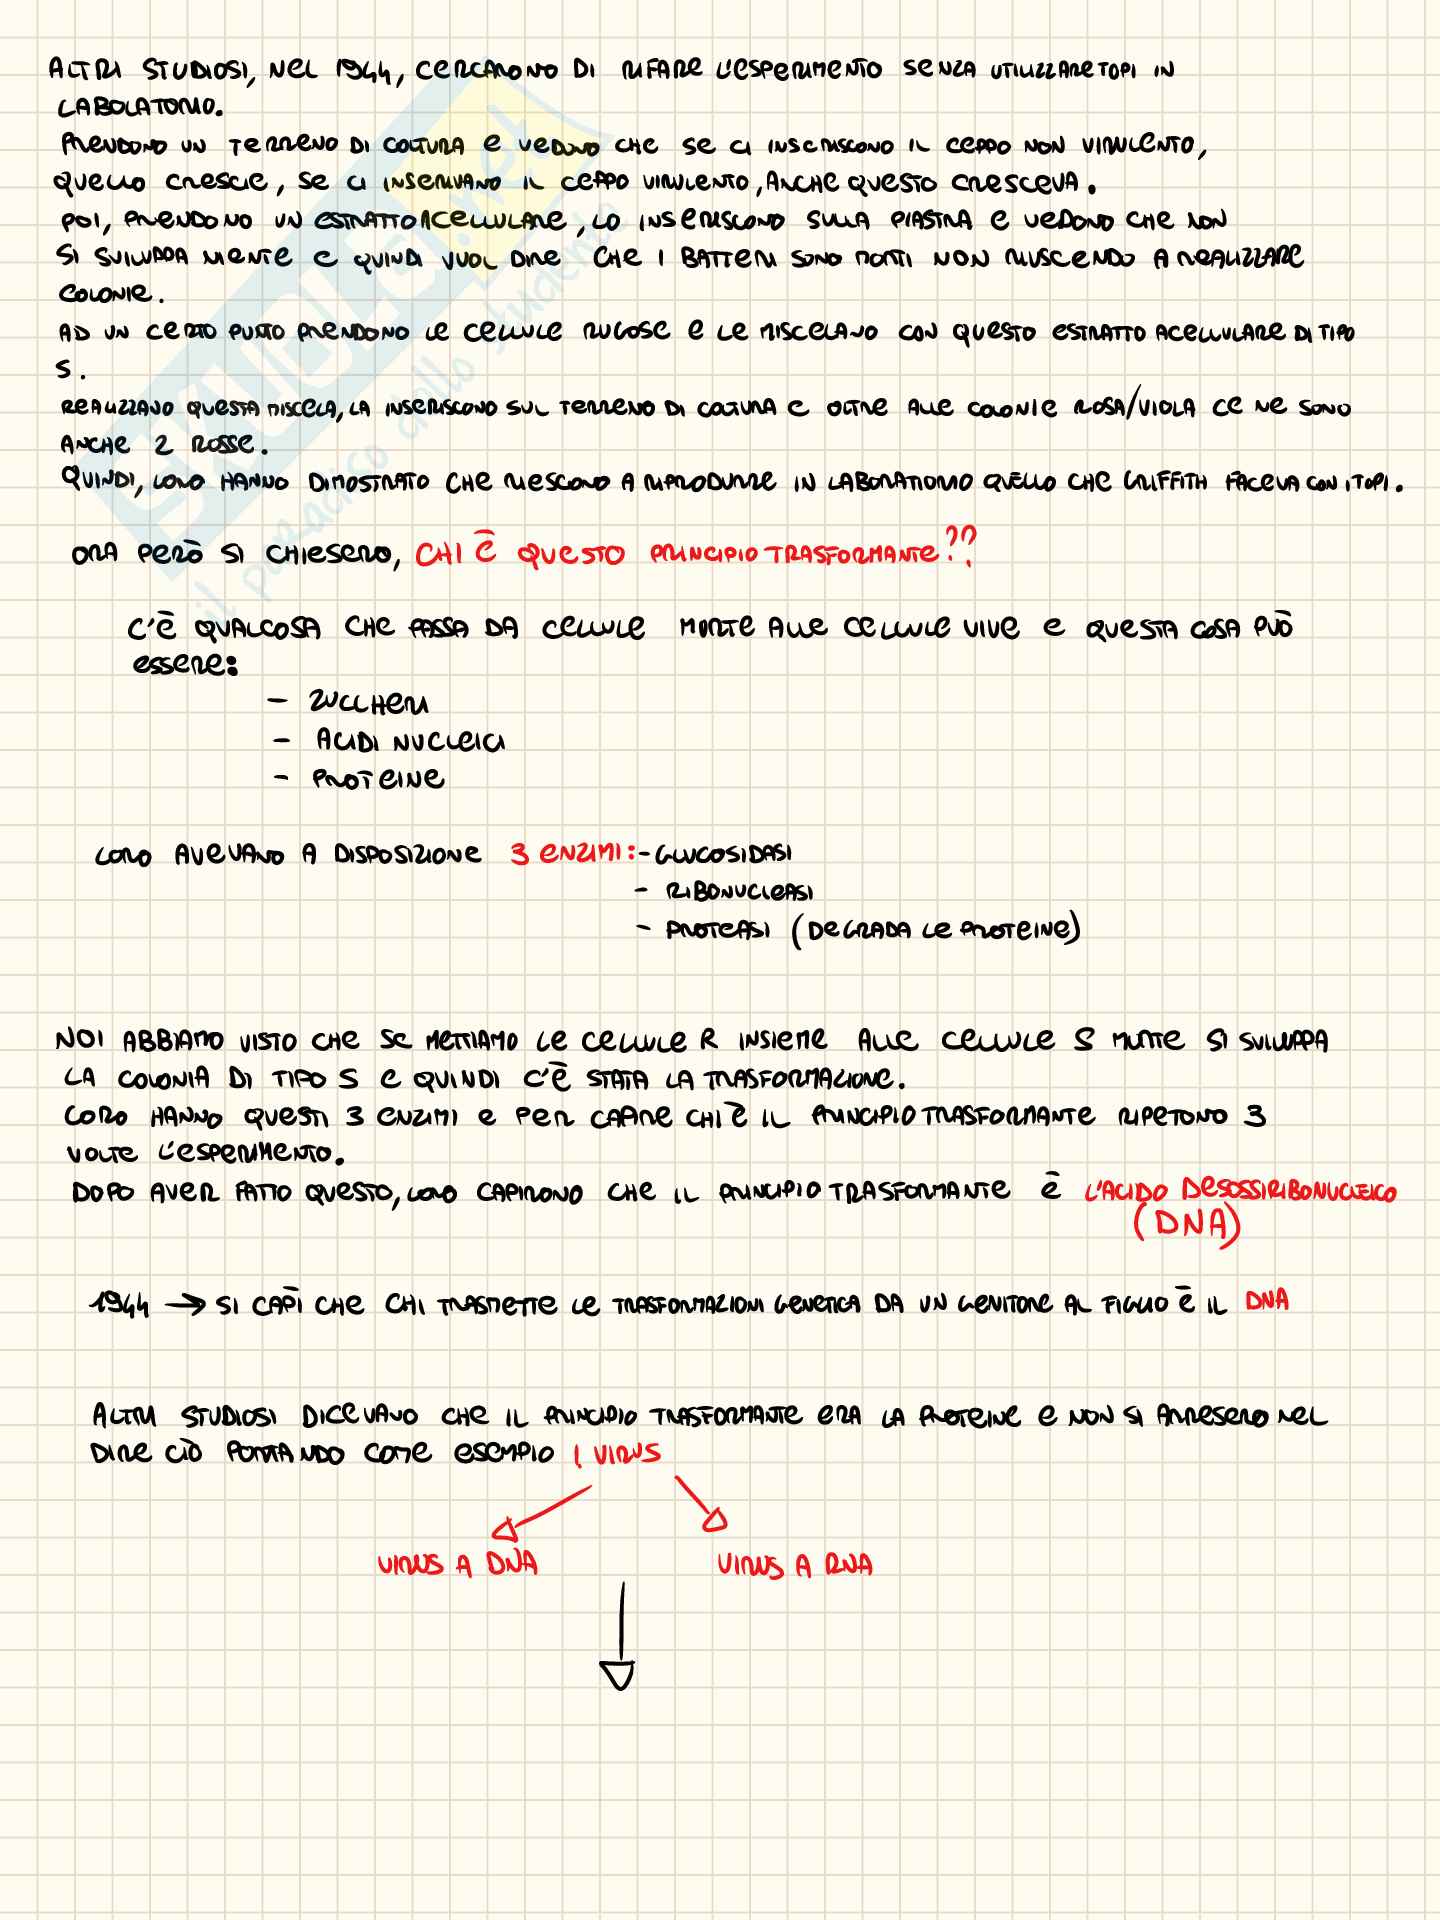 ALTRI STUDIOSI, NEL 1944, CERCARONO DI RIFARE L'ESPERIMENTO SENZA UTILIZZARE TOPI IN
LABOLATORIO.
PRENDONO UN TERRENO DI COLTURA E VEDONO CHE SE CI INSERISCONO IL CEPPO NON VIRULENTO,
QUELLO CRESCIE, SE CI INSERIVANO IL CEPPO VIRULENTO, ANCHE QUESTO CRESCEVA.
POI, PRENDONO UN ESTRATTO ACELLULARE, LO INSERISCONO SULLA PIASTRA E VEDONO CHE NON
SI SVILUPPA NIENTE E QUINDI VUOL DIRE CHE I BATTERI SONO MORTI NON RIUSCENDO A REALIZZARE
COLONIE.
AD UN CERTO PUNTO PRENDONO LE CELLULE RUGOSE E LE MISCELANO CON QUESTO ESTRATTO ACELLULARE DI TIPO
S.
REALIZZANO QUESTA MISCELA, LA INSERISCONO SUL TERRENO DI COLTURA E OLTRE ALLE COLONIE ROSA/VIOLA CE NE SONO
ANCHE 2 ROSSE.
QUINDI, LORO HANNO DIMOSTRATO CHE RIESCONO A RIPRODURRE IN LABORATIORIO QUELLO CHE GRIFFITH FACEVA CON I TOPI.
ORA PERÒ SI CHIESERO, CHI È QUESTO PRINCIPIO TRASFORMANTE??
C'È QUALCOSA CHE PASSA DA CELLULE MORTE ALLE CELLULE VIVE E QUESTA COSA PUÒ
ESSERE:
- ZUCCHERI
- ACIDI NUCLEICI
- PROTEINE
LORO AVEVANO A DISPOSIZIONE 3 ENZIMI: - GLUCOSIDASI
- RIBONUCLEASI
- PROTEASI (DEGRADA LE PROTEINE)
NOI ABBIAMO VISTO CHE SE METTIAMO LE CELLULE R INSIEME ALLE CELLULE S MORTE SI SVILUPPA
LA COLONIA DI TIPO S E QUINDI C'È STATA LA TRASFORMAZIONE.
LORO HANNO QUESTI 3 ENZIMI E PER CAPIRE CHI È IL PRINCIPIO TRASFORMANTE RIPETONO 3
VOLTE L'ESPERIMENTO.
DOPO AVER FATTO QUESTO, LORO CAPIRONO CHE IL PRINCIPIO TRASFORMANTE È L'ACIDO DESOSSIRIBONUCLEICO
(DNA)
1944 → SI CAPÌ CHE CHI TRASMETTE LE TRASFORMAZIONI GENETICA DA UN GENITORE AL FIGLIO È IL DNA
ALTRI STUDIOSI DICEVANO CHE IL PRINCIPIO TRASFORMANTE ERA LA PROTEINE E NON SI ARRESERO NEL
DIRE CIÒ PORTANDO COME ESEMPIO I VIRUS
VIRUS A DNA VIRUS A RNA
SKUOLA.net
il paradiso dello studente